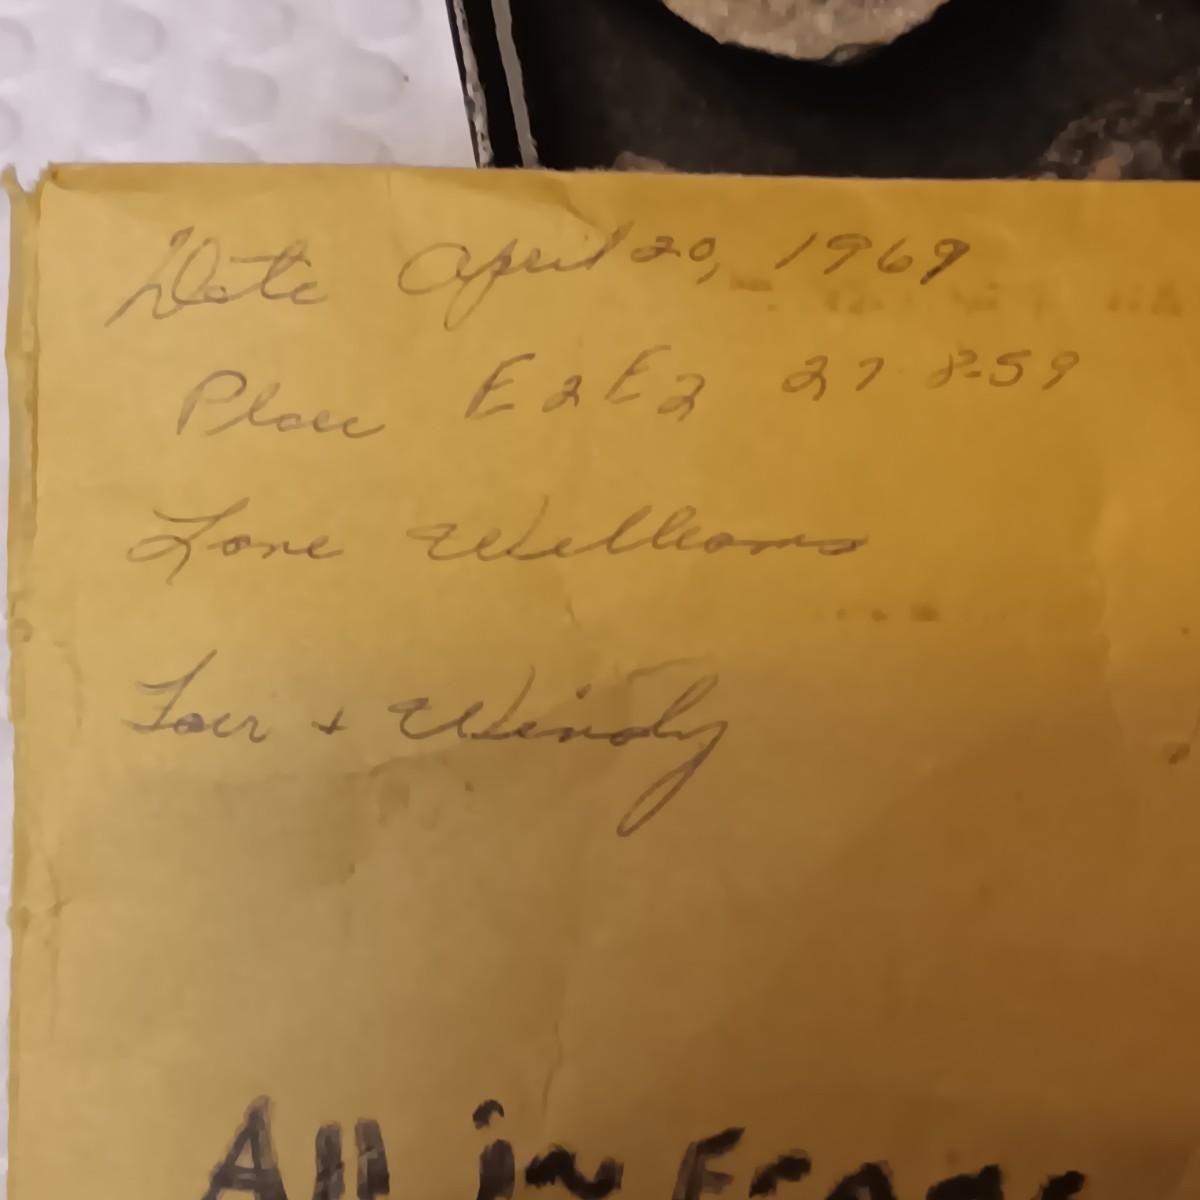 Date April 20, 1969
Place E2E2 27-8-59
Lone Williams
Fair + Windy
All in Frame